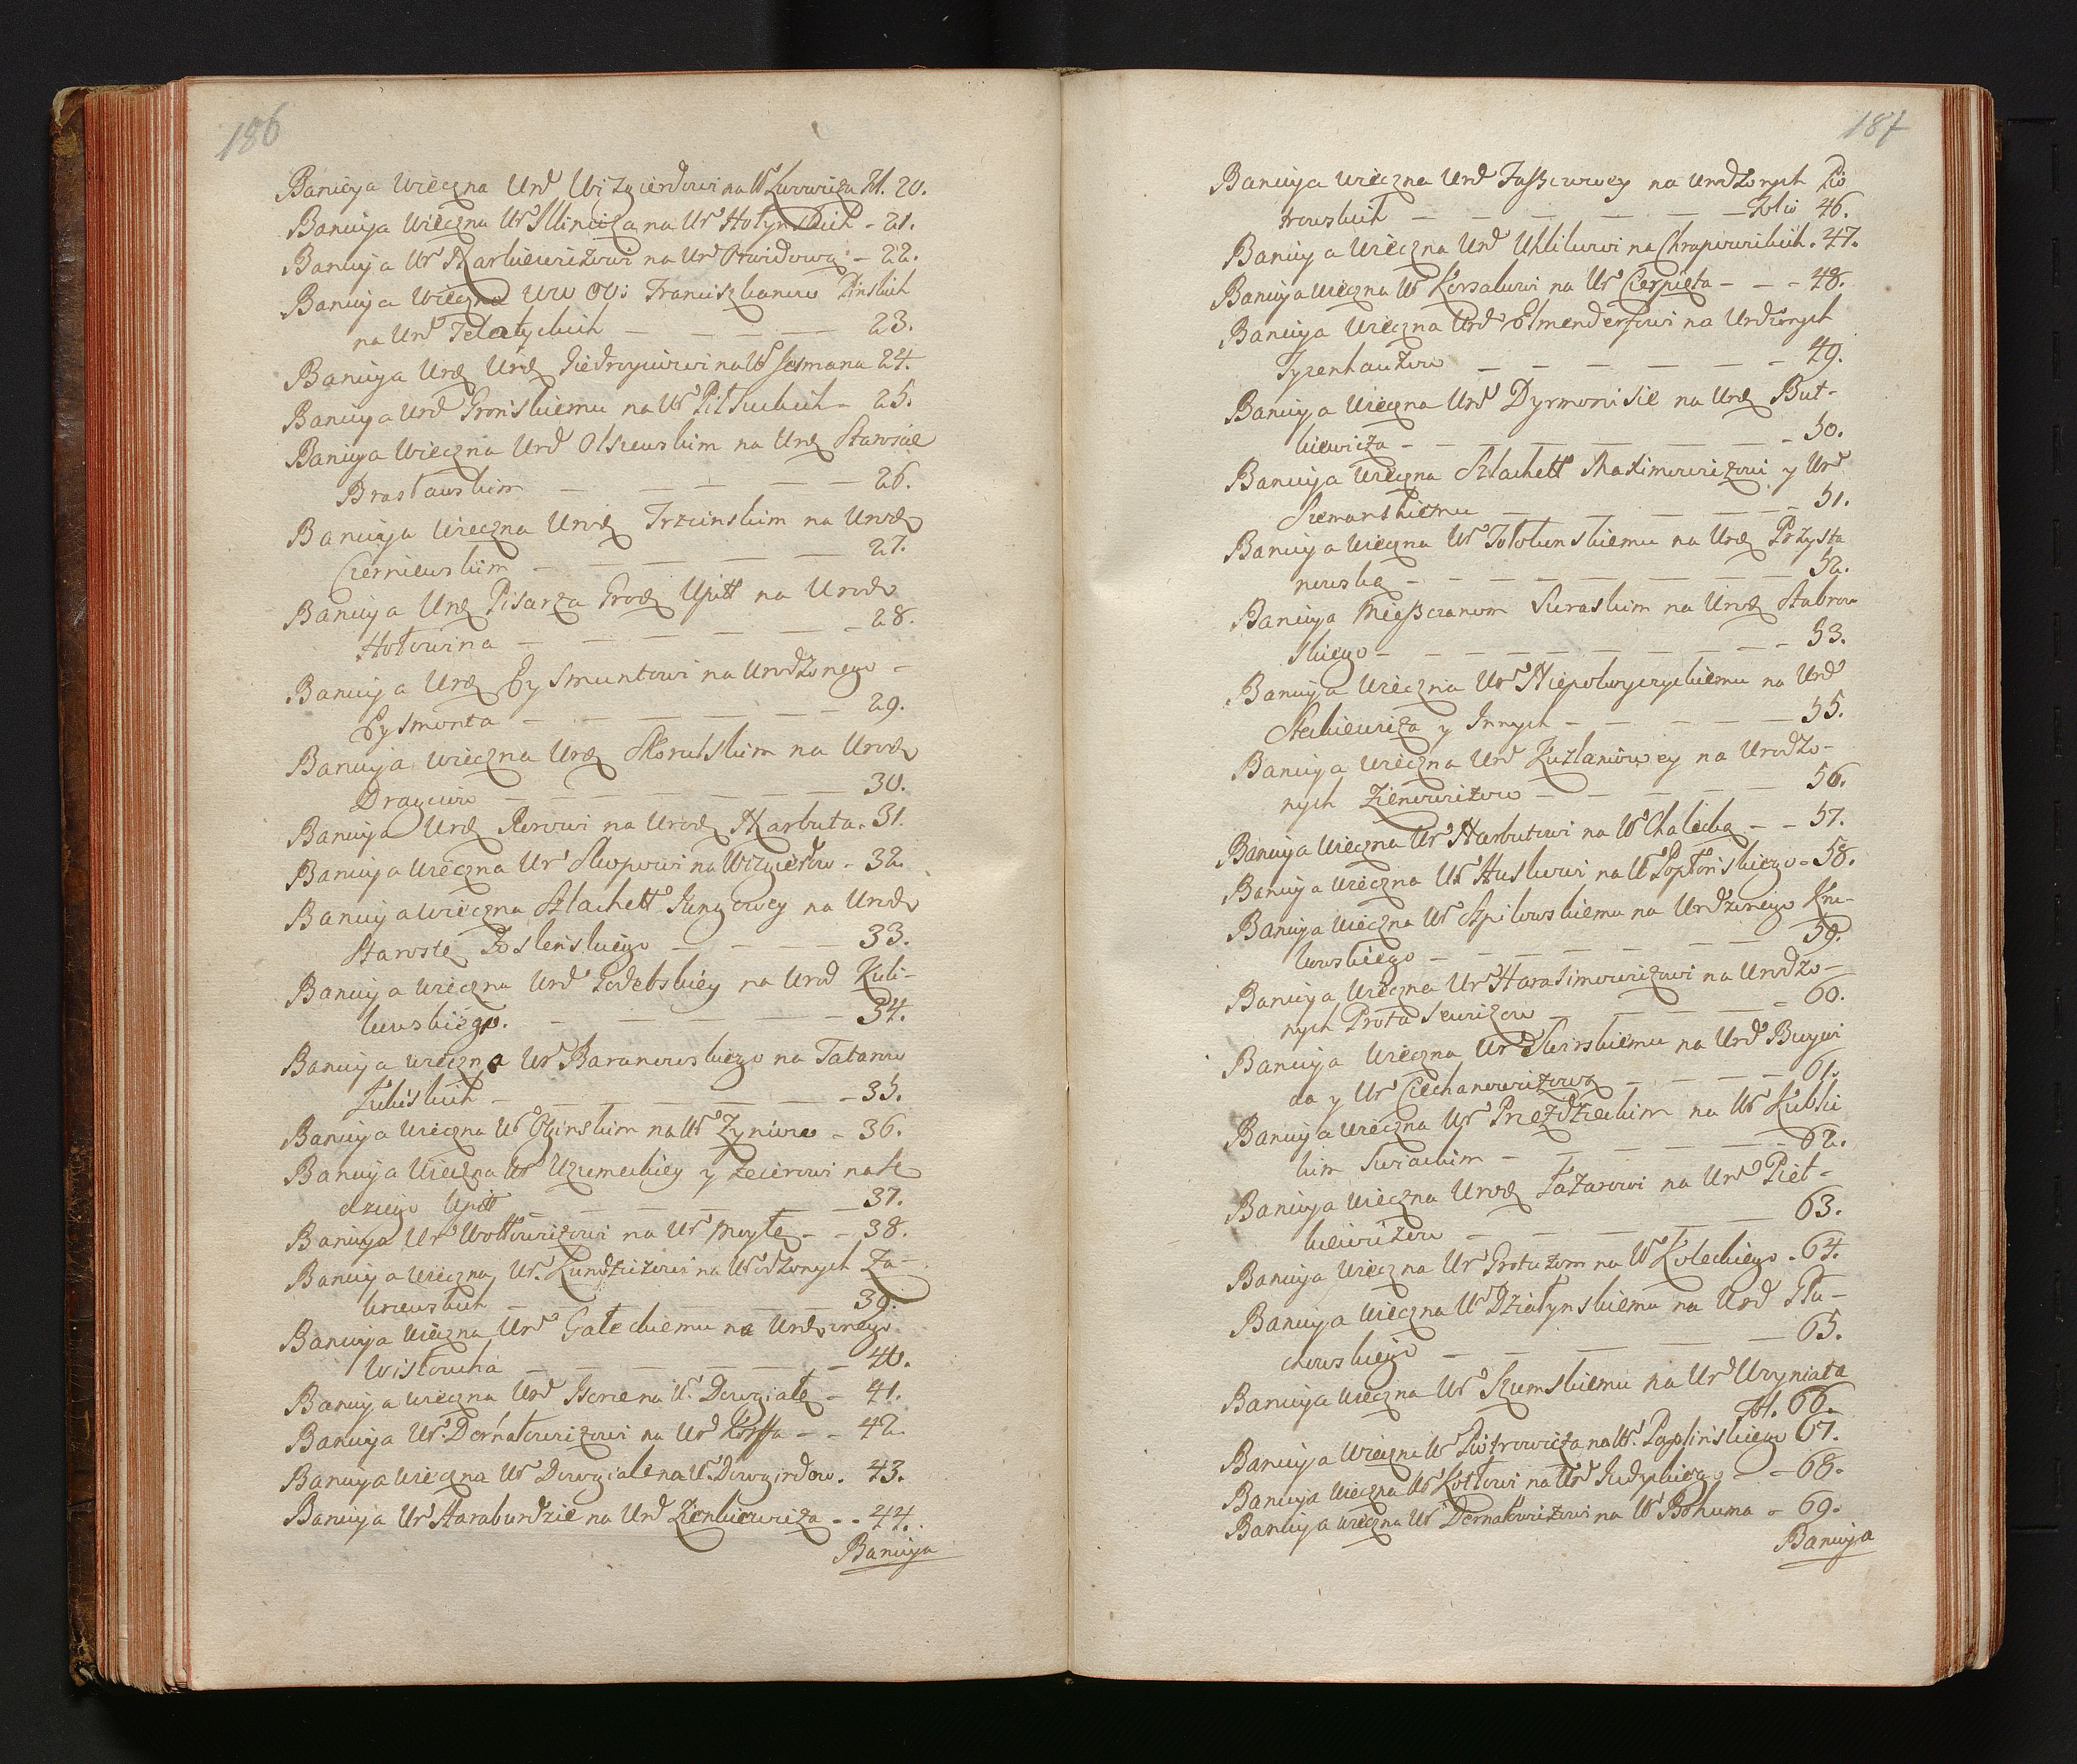 186
Banicya Wieczna Urd Wizgierdowi na W Lwowicza fol. 20.
Banicya Wieczna Ur Illinicza na Ur Hołynskich - 21.
Banicya Ur Narkiewiczowi na Urd Orwidową - 22.
Banicya Wieczna WW OO: Franciszkanow Pinskich
na Urd Telatyckich - 23.
Banicya Urd Giedroyciowi na W Jesmana 24.
Banicya Urd Gronskiemu na Ur Piłsuckich - 25.
Banicya Wieczna Urd Olszewskim na Urz Staroscie
Brasławskim - 26.
Banicya Wieczna Urodz Trzcinskim na Urodz
Czerniewskim - 27.
Banicya Urz Pisarza Grodz Upitt na Urodz
Hołownia - 28.
Banicya Urz Eysmuntowi na Urodzonego -
Eysmonta - 29.
Banicya Wieczna Urz Skorulskim na Urodz
Dragciow - 30.
Banicya Urz Rerowi na Urodz Narbuta - 31.
Banicya Wieczna Ur Skopowi na Wizgierdow - 32.
Banicya Wieczna Szlachett Jungowey na Urodz
Staroste Josleńskiego - 33.
Banicya Wieczna Urd Podebskiey na Urod Kuli-
kowskiego. - 34.
Banicya Wieczna Ur Baranowskiego na Tatarow
Łukiskich - 35.
Banicya Wieczna W Oginskim na W Zyniew - 36.
Banicya Wieczna W Uzumeckiey y Zecerowi na Sę
dziego Upitt - 37.
Banicya Ur Wołłowiczowi na Ur Moyłę - 38.
Banicya Wieczna Ur. Kundziczowi na Urodzonych Za-
krzewskich - 39.
Banicya Wieczna Urd Gałeckiemu na Urodzonego
Wisłoucha - 40.
Banicya Wieczna Urd Gorze na W. Dowgiałę - 41.
Banicya Ur. Dernałowiczowi na Ur Korffa - - 42.
Banicya Wieczna Ur Dowgiale na W. Dowgirdow. 43.
Banicya Ur Haraburdzie na Urd Zienkiewicza - - 44.
Banicya
187
Banicya Wieczna Urd Juszcowey na Urodzonych Pio
trowskich - Folio 46.
Banicya Wieczna Urd Uklikowi na Chrapowickich. 47.
Banicya Wieczna W Korsakowi na Ur Cierpięta - - - 48.
Banicya Wieczna Urd Elmenderfowi na Urdzonych
Tyzenhauzow - 49.
Banicya Wieczna Urd Dyrmonisie na Urz But-
kiewicza - 50.
Banicya Wieczna Szlachett Maximowiczowi y Urd
Szemanskiemu - 51.
Banicya Wieczna W Tołokunskiemu na Urz Przysta
nowską - 52.
Banicya Mieszczanom Suraskim na Urodz Stabrow
skiego - 53.
Banicya Wieczna Ur Niepokoyczyckiemu na Urd
Steckiewicza y Innych - 55.
Banicya Wieczna Urd Kuzlaniowey na Urodzo-
nych Zienowiczow - 56.
Banicya Wieczna Ur Narbutowi na W Chalecką - - 57.
Banicya Wieczna Ur Huskowi na W Popłońskiego - 58.
Banicya Wieczna Ur Szpilowskiemu na Urdzonego Kru-
kowskiego - 59.
Banicya Wieczna Ur Harasimowiczowi na Urodzo-
nych Protasewiczow - 60.
Banicya Wieczna Ur Swirskiemu na Urd Buywi
da y Ur Ciechanowiczową - 61.
Banicya Wieczna Ur Przezdzieckim na W Kublic
kim Swiackim - 62.
Banicya Wieczna Urodz Łazarowi na Urd Piet-
kiewiczow - 63.
Banicya Wieczna Ur Grotuzom na W Koteckiego - 64.
Banicya Wieczna Ur Działynskiemu na Urd Pła-
chowskiego - 65.
Banicya Wieczna Ur Szumskiemu na Ur Woyniata
fol. 66.
Banicya Wieczna W Piotrowicza na W. Poplińskiego 67.
Banicya Wieczna W Kotłowi na Urd Judyckiego - 68.
Banicya Wieczna Ur Dernałowiczowi na W Bohuma - 69.
Banicya